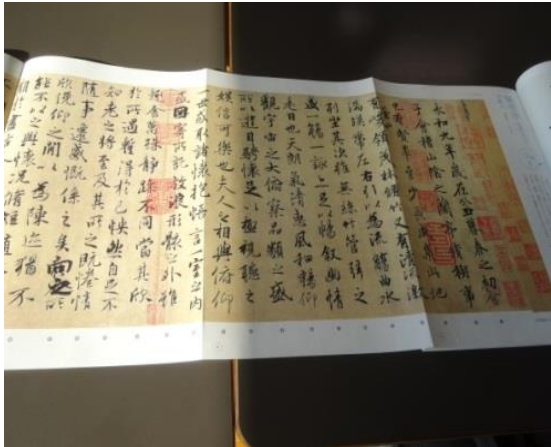 永和九年歲在癸丑暮春之初會
于會稽山陰之蘭亭脩稧事
也群賢畢至少長咸集此地
有崇山峻領茂林脩竹又有清流激
湍暎帶左右引以為流觴曲水
列坐其次雖無絲竹管弦之
盛一觴一詠亦足以暢敘幽情
是日也天朗氣清惠風和暢仰
觀宇宙之大俯察品類之盛
所以遊目騁懷足以極視聽之
娛信可樂也夫人之相與俯仰
一世或取諸懷抱悟言一室之內
或因寄所託放浪形骸之外雖
趣舍萬殊靜躁不同當其欣
於所遇暫得於己怏然自足不
知老之將至及其所之既惓情
隨事遷感慨係之矣向之所
欣俛仰之間以為陳迹猶不
能不以之興懷況脩短隨